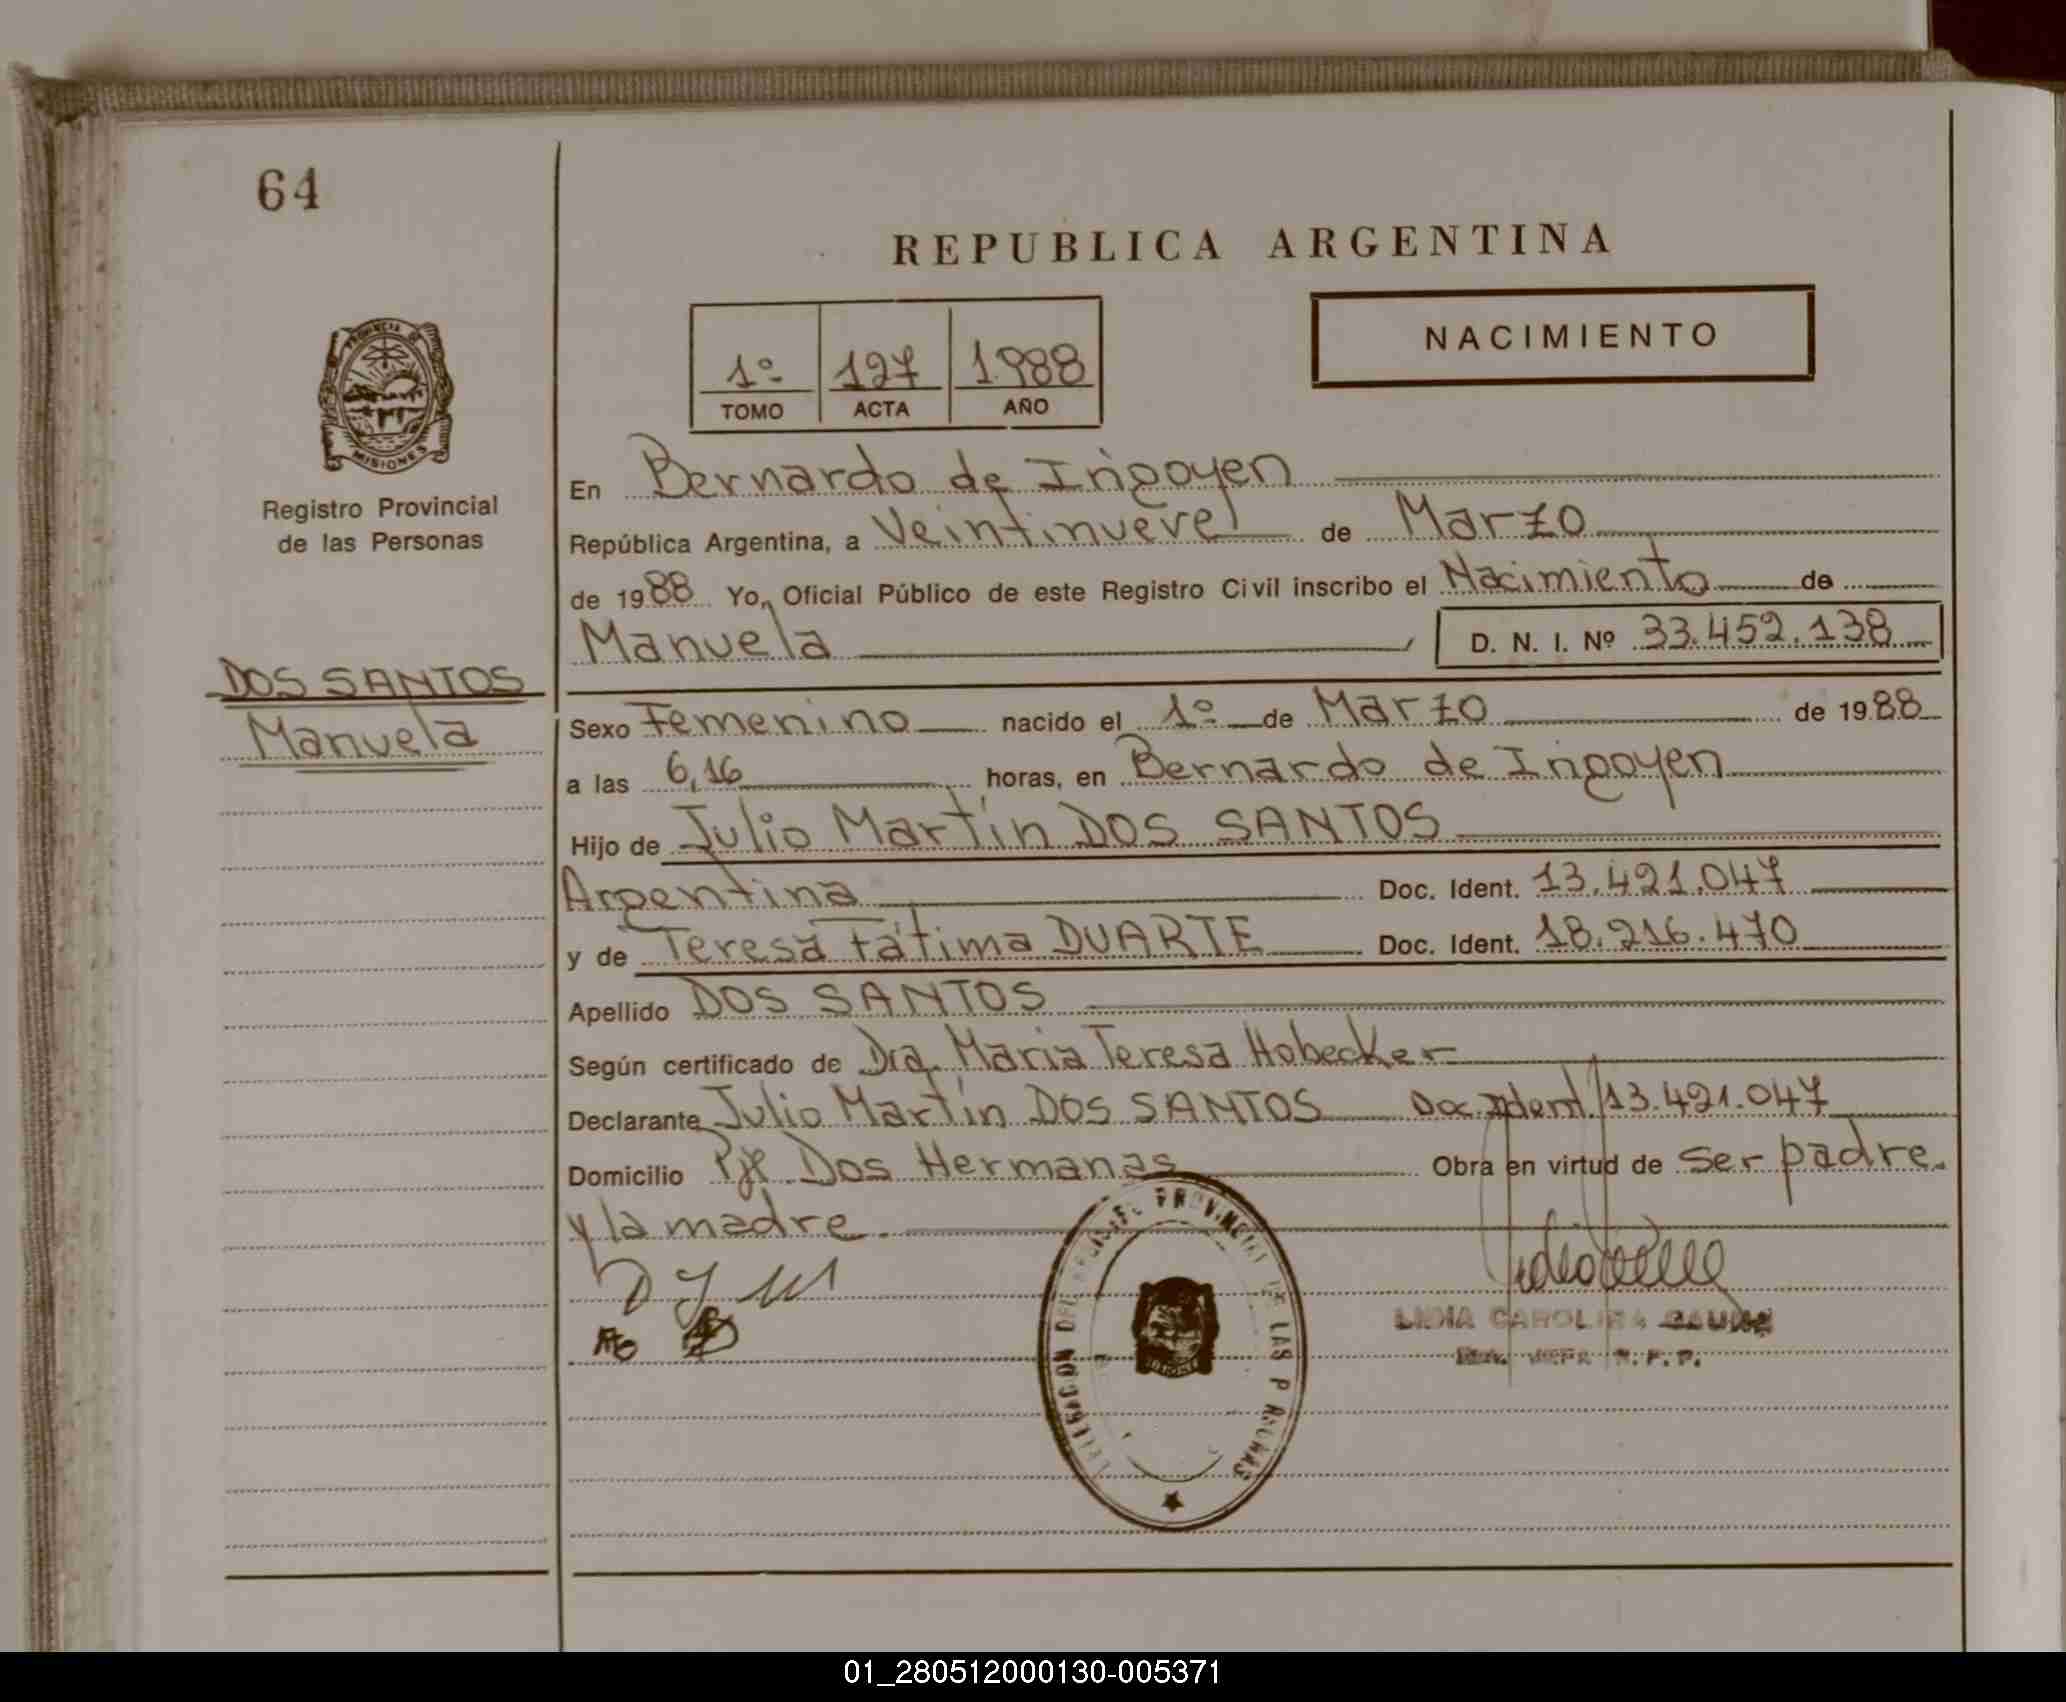 64
REPUBLICA ARGENTINA
NACIMIENTO
1º 127 1.988
TOMO ACTA AÑO
PROVINCIA DE
MISIONES
Registro Provincial
de las Personas
DOS SANTOS
Manuela
En Bernardo de Irigoyen
República Argentina, a Veintinueve de Marzo
de 1988 Yo, Oficial Público de este Registro Civil inscribo el Nacimiento de
Manuela D. N. I. Nº 33.452.138
Sexo Femenino nacido el 1º de Marzo de 1988
a las 6,16 horas, en Bernardo de Irigoyen
Hijo de Julio Martín DOS SANTOS
Argentina Doc. Ident. 13.421.047
y de Teresa Fátima DUARTE Doc. Ident. 18.216.470
Apellido DOS SANTOS
Según certificado de Dra. Maria Teresa Hobecker
Declarante Julio Martín DOS SANTOS Doc. Ident. 13.421.047
Domicilio Pje Dos Hermanas Obra en virtud de ser padre
y la madre.
D J M
DELEGACION DEL REGISTRO PROVINCIAL DE LAS PERSONAS
CAROLINA
R. P. P.
01_280512000130-005371